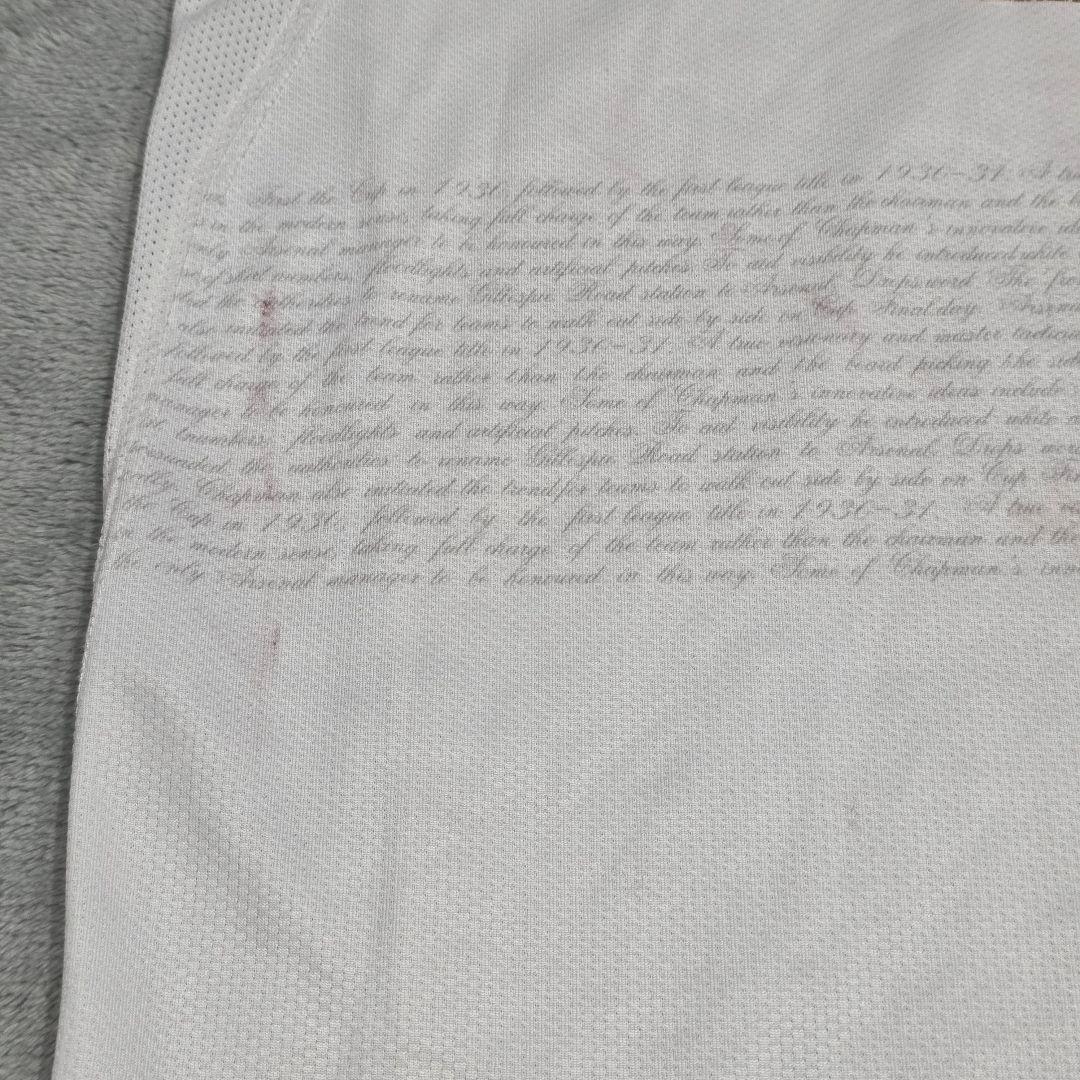 the Cup in 1930, followed by the first league title in 1930-31. A
in the modern sense, taking full charge of the team rather than the chairman and the
only Arsenal manager to be honoured in this way. Some of Chapman's innovative
numbers, floodlights and artificial pitches. To aid visibility he introduced white
the authorities to rename Gillespie Road station to Arsenal. Drops word The
also initiated the trend for teams to walk out side by side on Cup Final day.
followed by the first league title in 1930-31. A true visionary and master
full charge of the team rather than the chairman and the board picking the
manager to be honoured in this way. Some of Chapman's innovative ideas include
numbers, floodlights and artificial pitches. To aid visibility he introduced white
persuaded the authorities to rename Gillespie Road station to Arsenal. Drops
Chapman also initiated the trend for teams to walk out side by side on Cup
the Cup in 1930, followed by the first league title in 1930-31. A true
in the modern sense, taking full charge of the team rather than the chairman and the
the only Arsenal manager to be honoured in this way. Some of Chapman's